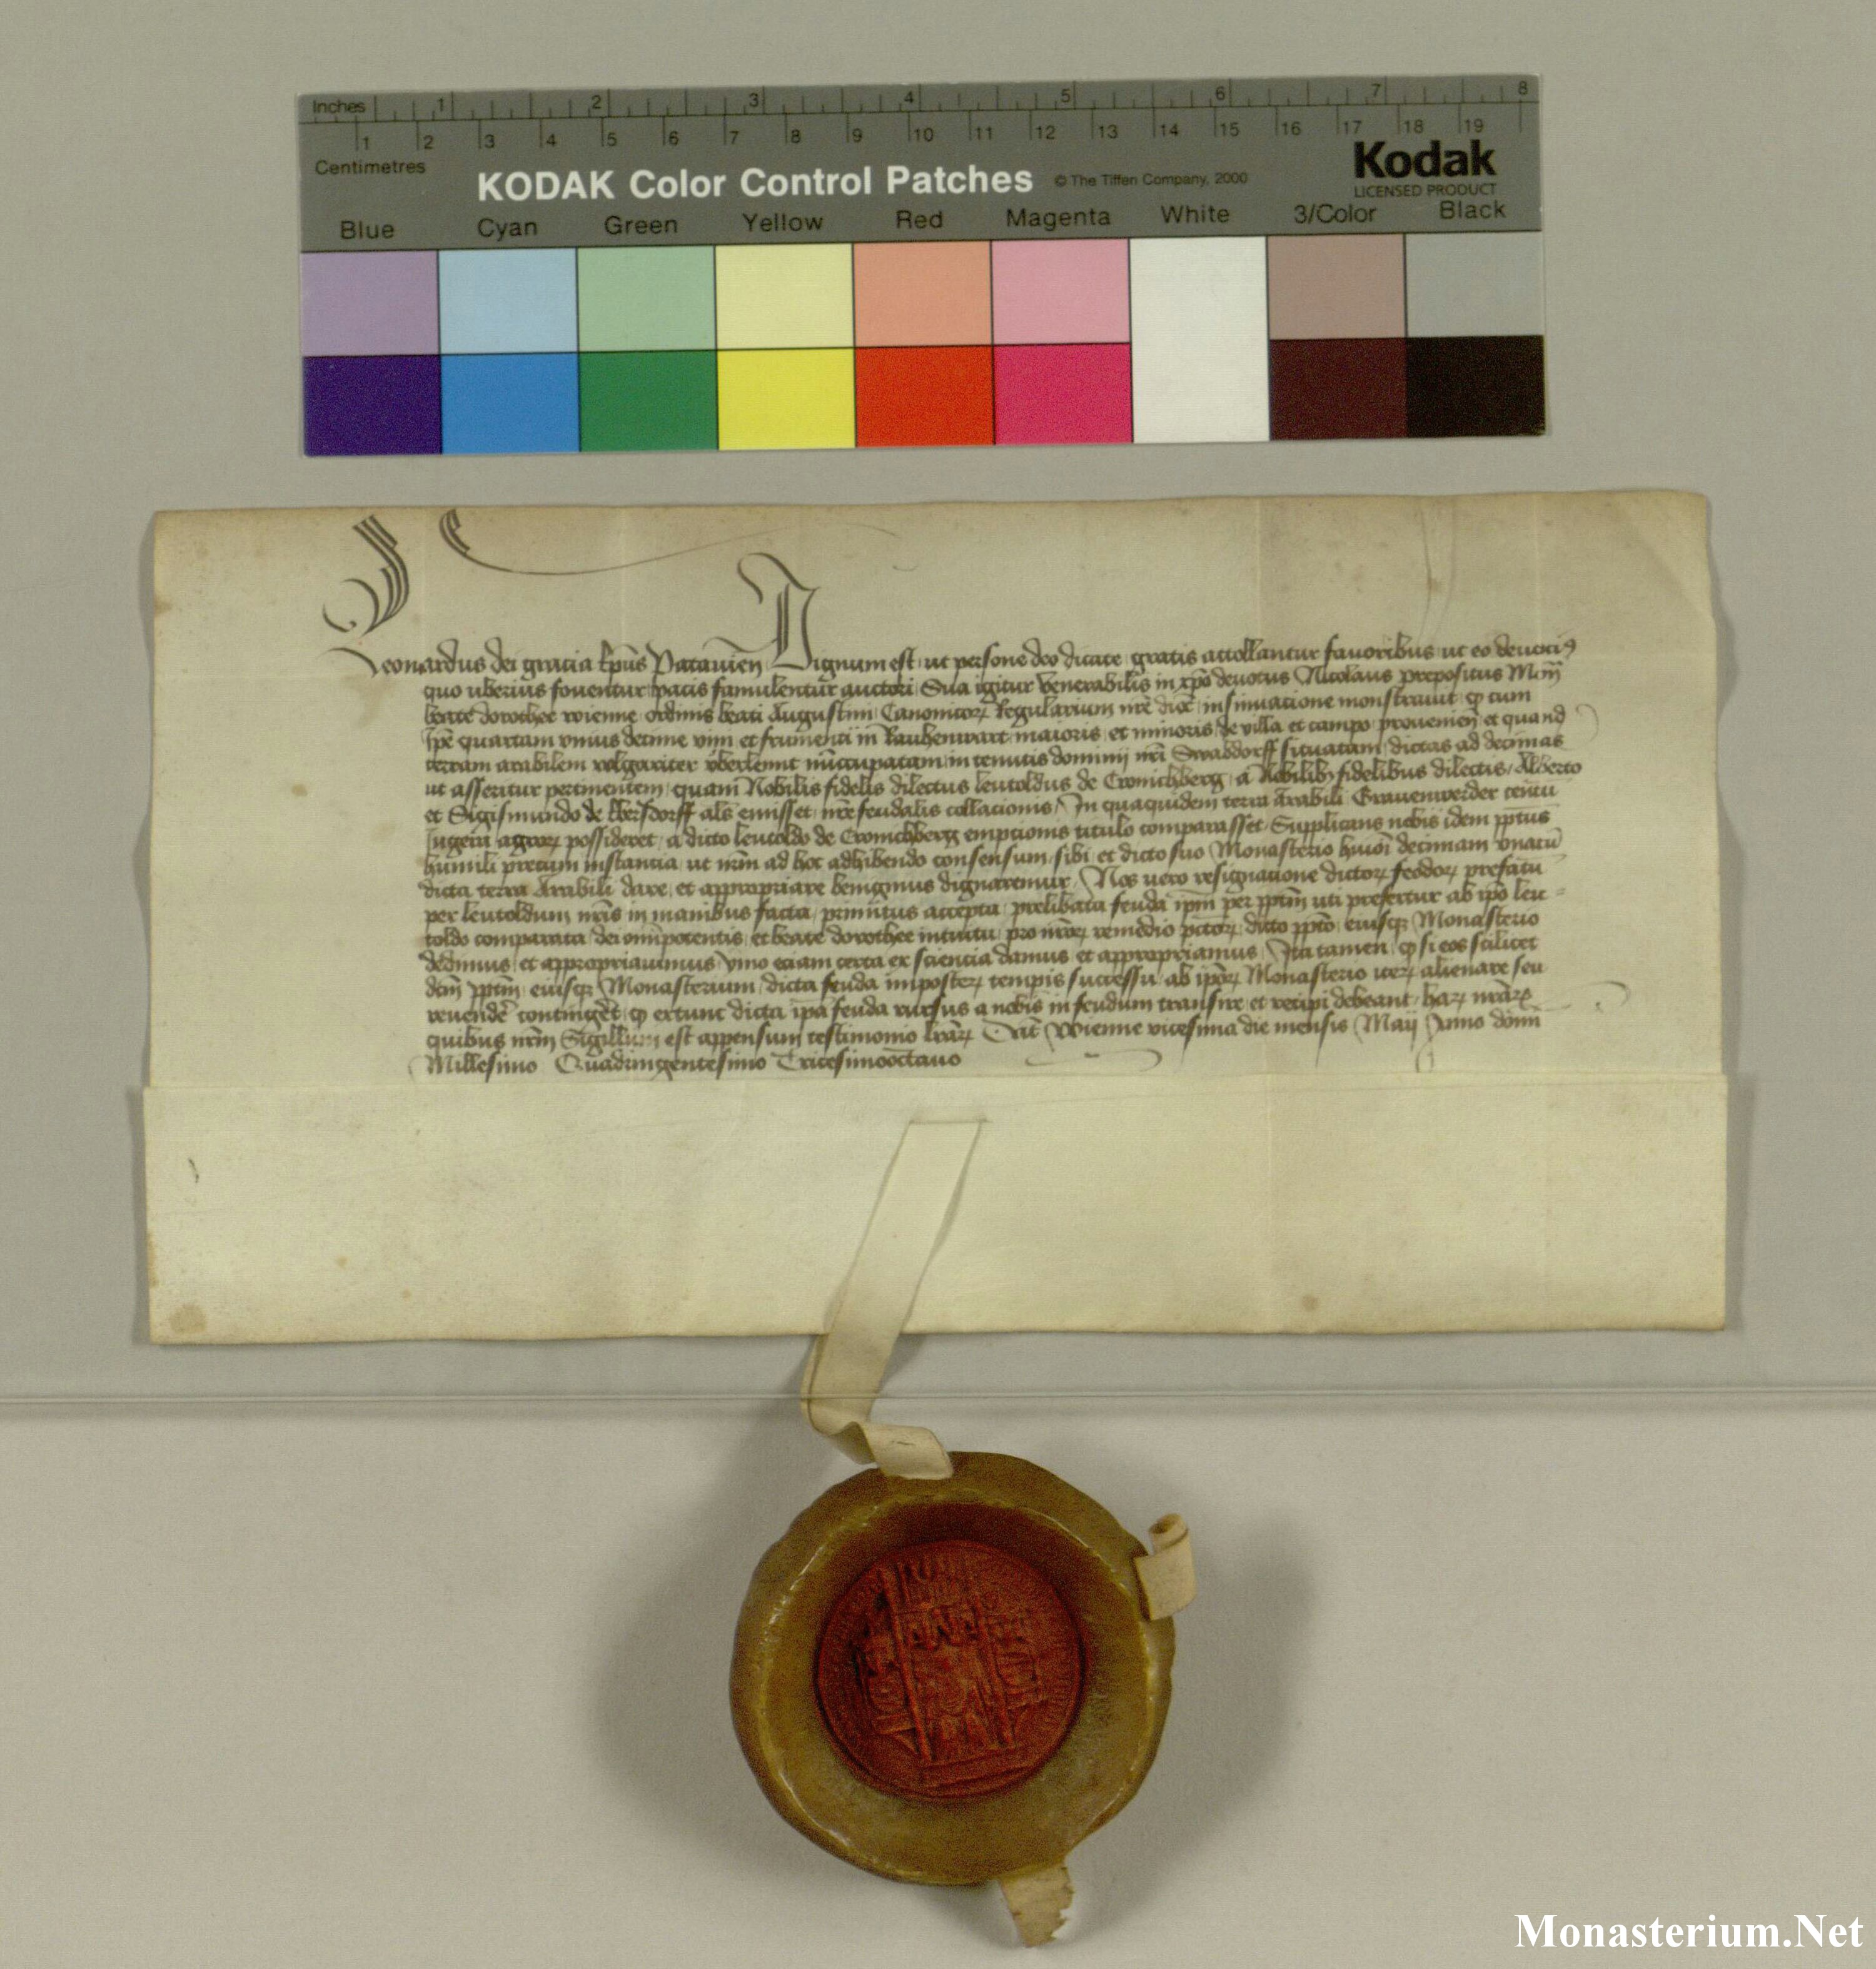 Inches 1 2 3 4 5 6 7 8
1 2 3 4 5 6 7 8 9 10 11 12 13 14 15 16 17 18 19
Centimetres
KODAK Color Control Patches © The Tiffen Company, 2000 Kodak
LICENSED PRODUCT
Blue Cyan Green Yellow Red Magenta White 3/Color Black
Leonardus dei gracia Ep̄us Patauień Dignum est ut persone deo dicate gratis attollantur fauoribus ut eo deuocius
quo uberius fouentur pacis famulentur auctori Sua igitur venerabilis in xp̄o deuotus Nicolaus prepositus Moñ
beate dorothee wienne ordinis beati Augustini Canonicoꝝ Regularium nr̄e dioc̄ insinuacione monstrauit ꝙ cum
ip̄e quartam vnius decime vini et frumenti in Rauhenwart maioris et minoris de villa et campo prouenieñ et quand
terram arabilem wlgariter vberlennt nūcupatam in tenutis dominij nr̄i Swaddorff situatam dictas ad decimas
ut asseritur pertinentem quam Nobilis fidelis dilectus leutoldus de Cronichberg a Nobilibꝫ fidelibus dilectis Alberto
et Sigismundo de Eberstorff als emisset nr̄e feudalis collacionis In quaquidem terra arabili Grauenwerder centū
Jugera agroꝝ possideret a dicto leutoldo de Cronichberg empcionis titulo comparasset Supplicans nobis idem pp̄tus
humili precum instancia ut nr̄m ad hoc adhibendo consensum sibi et dicto suo Monasterio hm̄oi decimam vnacū
dicta terra Arabili dare et appropriare benignius dignaremur Nos uero resignacione dictoꝝ feodoꝝ prefatū
per leutoldum nr̄is in manibus facta primitus accepta prelibata feuda ip̄m per pp̄tm uti prefertur ab ip̄o leu=
toldo comparata dei om̄ipotentis et beate dorothee intuitu pro nr̄oꝝ remedio pc̄toꝝ dicto pp̄to eiusqꝫ Monasterio
dedimus et appropriauimus ymo eciam certa ex sciencia damus et appropriamus Ita tamen ꝙ si eos scilicet
dc̄m pp̄tm eiusqꝫ Monasterium dicta feuda imposteꝝ tempis successu ab ip̄oꝝ Monasterio iteꝝ alienare seu
reuendēr contingēt ꝙ extunc dicta ip̄a feuda rursus a nobis in feudum transire et recipi debeant haꝝ nr̄aꝝ
quibus nr̄m Sigillum est appensum testimonio lr̄aꝝ Dat̄ Wienne vicesima die mensis Maij Anno domī
Millesimo Quadringentesimo Tricesimooctauo
Monasterium.Net